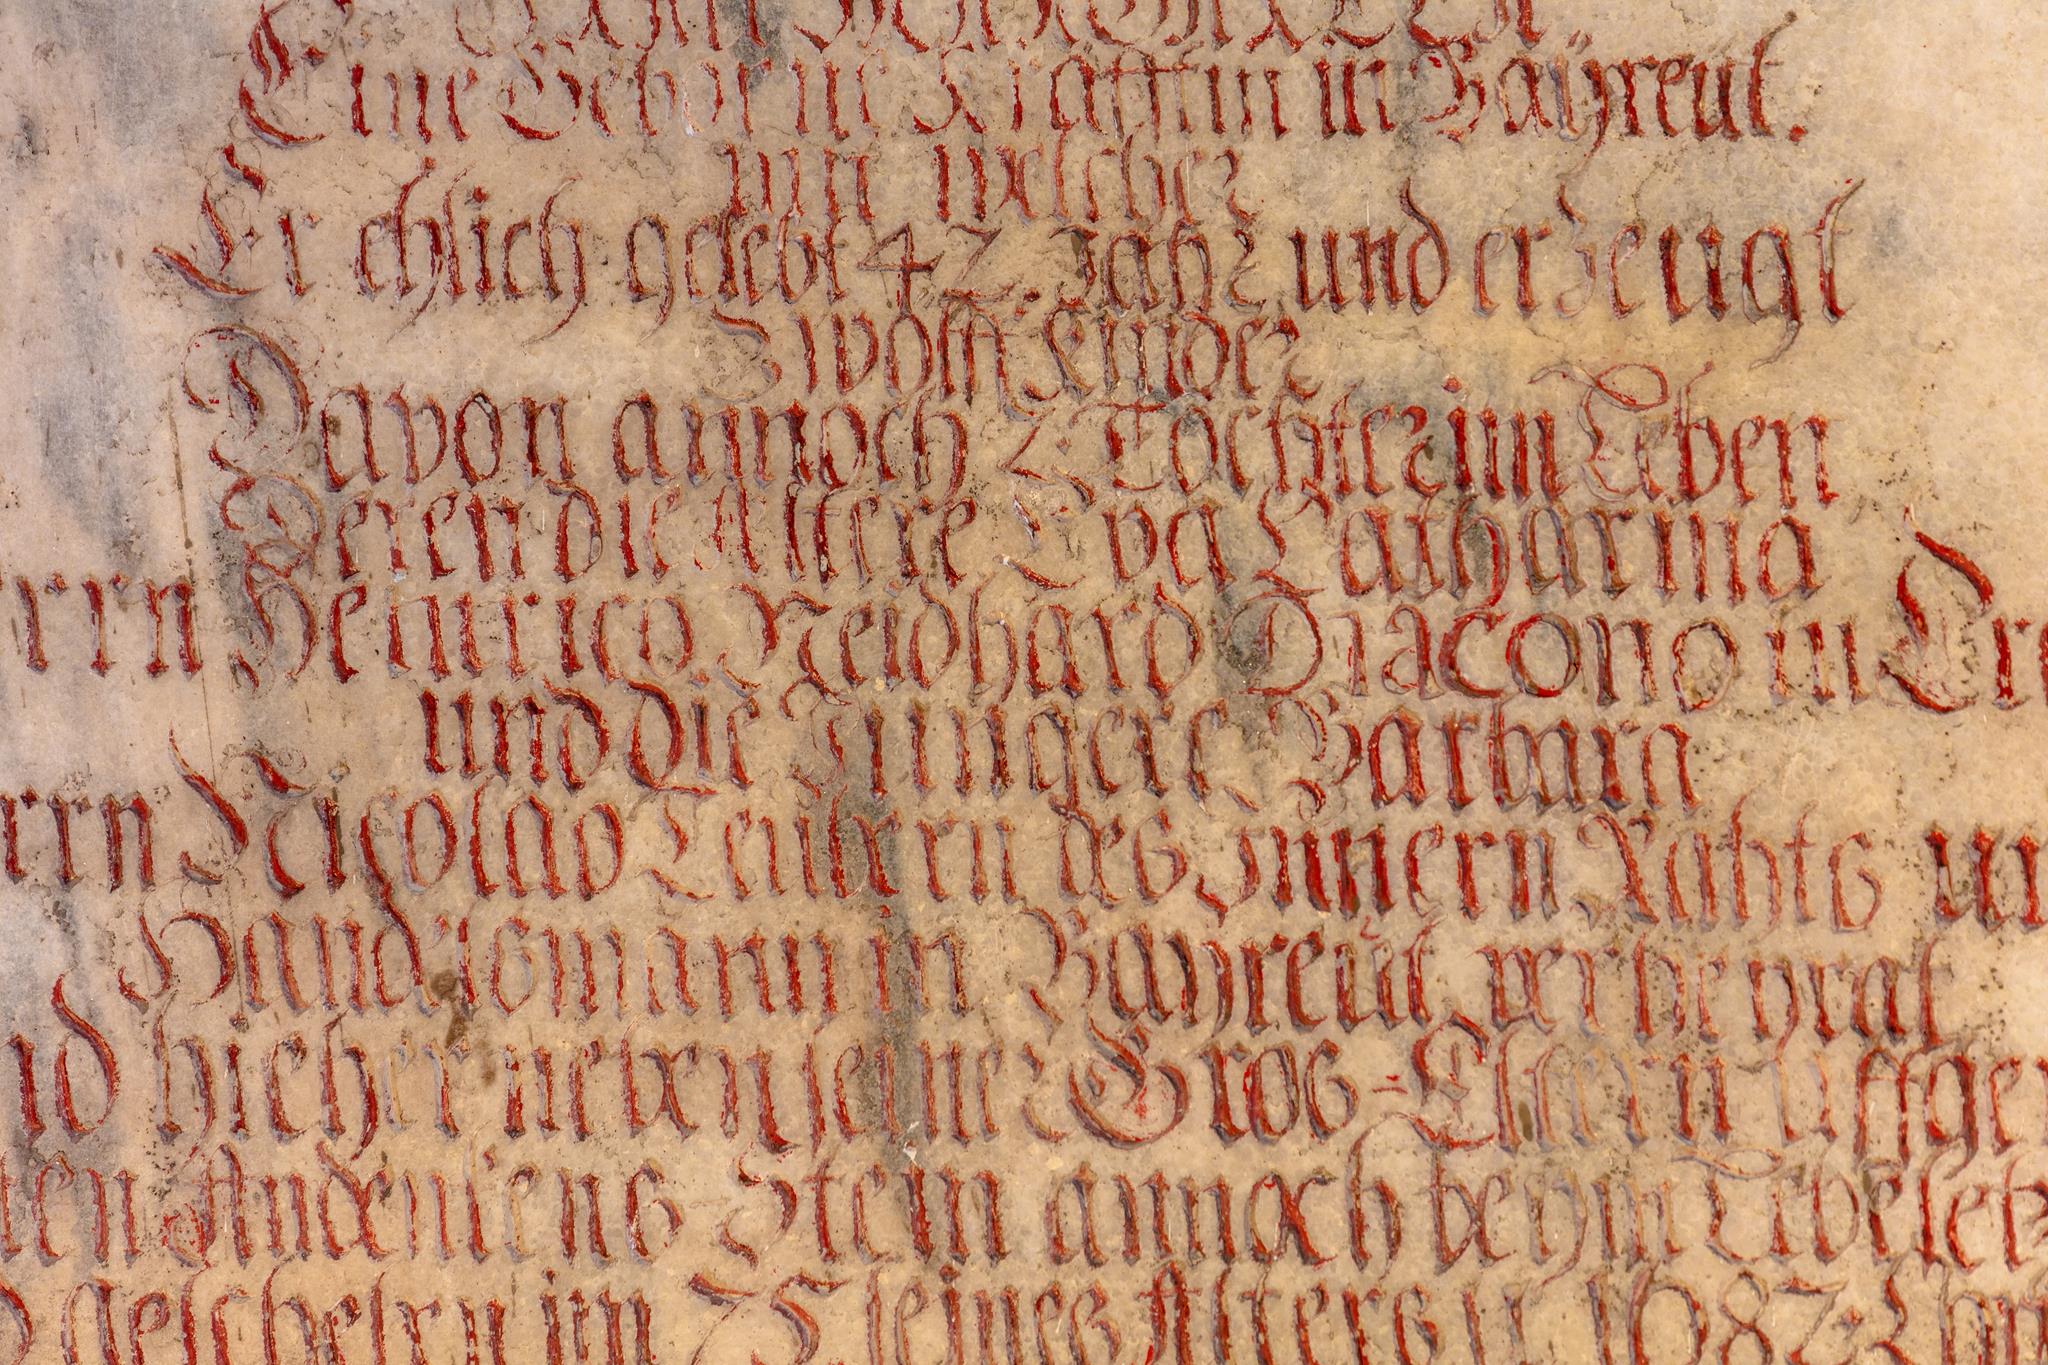 Eine Geborne Kräfftin in Baÿreut.
mit welcher
Er ehlich gelebt 42. Jahr und erzeugt
Zwölff Kinder
Davon annoch 2. Töchter im Leben
Deren die Altere Eva Catharina
rrn Heinrico Neidhard Diacono in Cre
und die Jüngere Barbara
rrn Nicolao Teubern des Innern Rahts un
Handelsmann in Bayreut verheyrat
nd hieher neben seine Gros-Eltern uffger
ten Andenkens Stein annoch beym Lebe setz
geschehen im 7 seines Alters u 1682. Chr